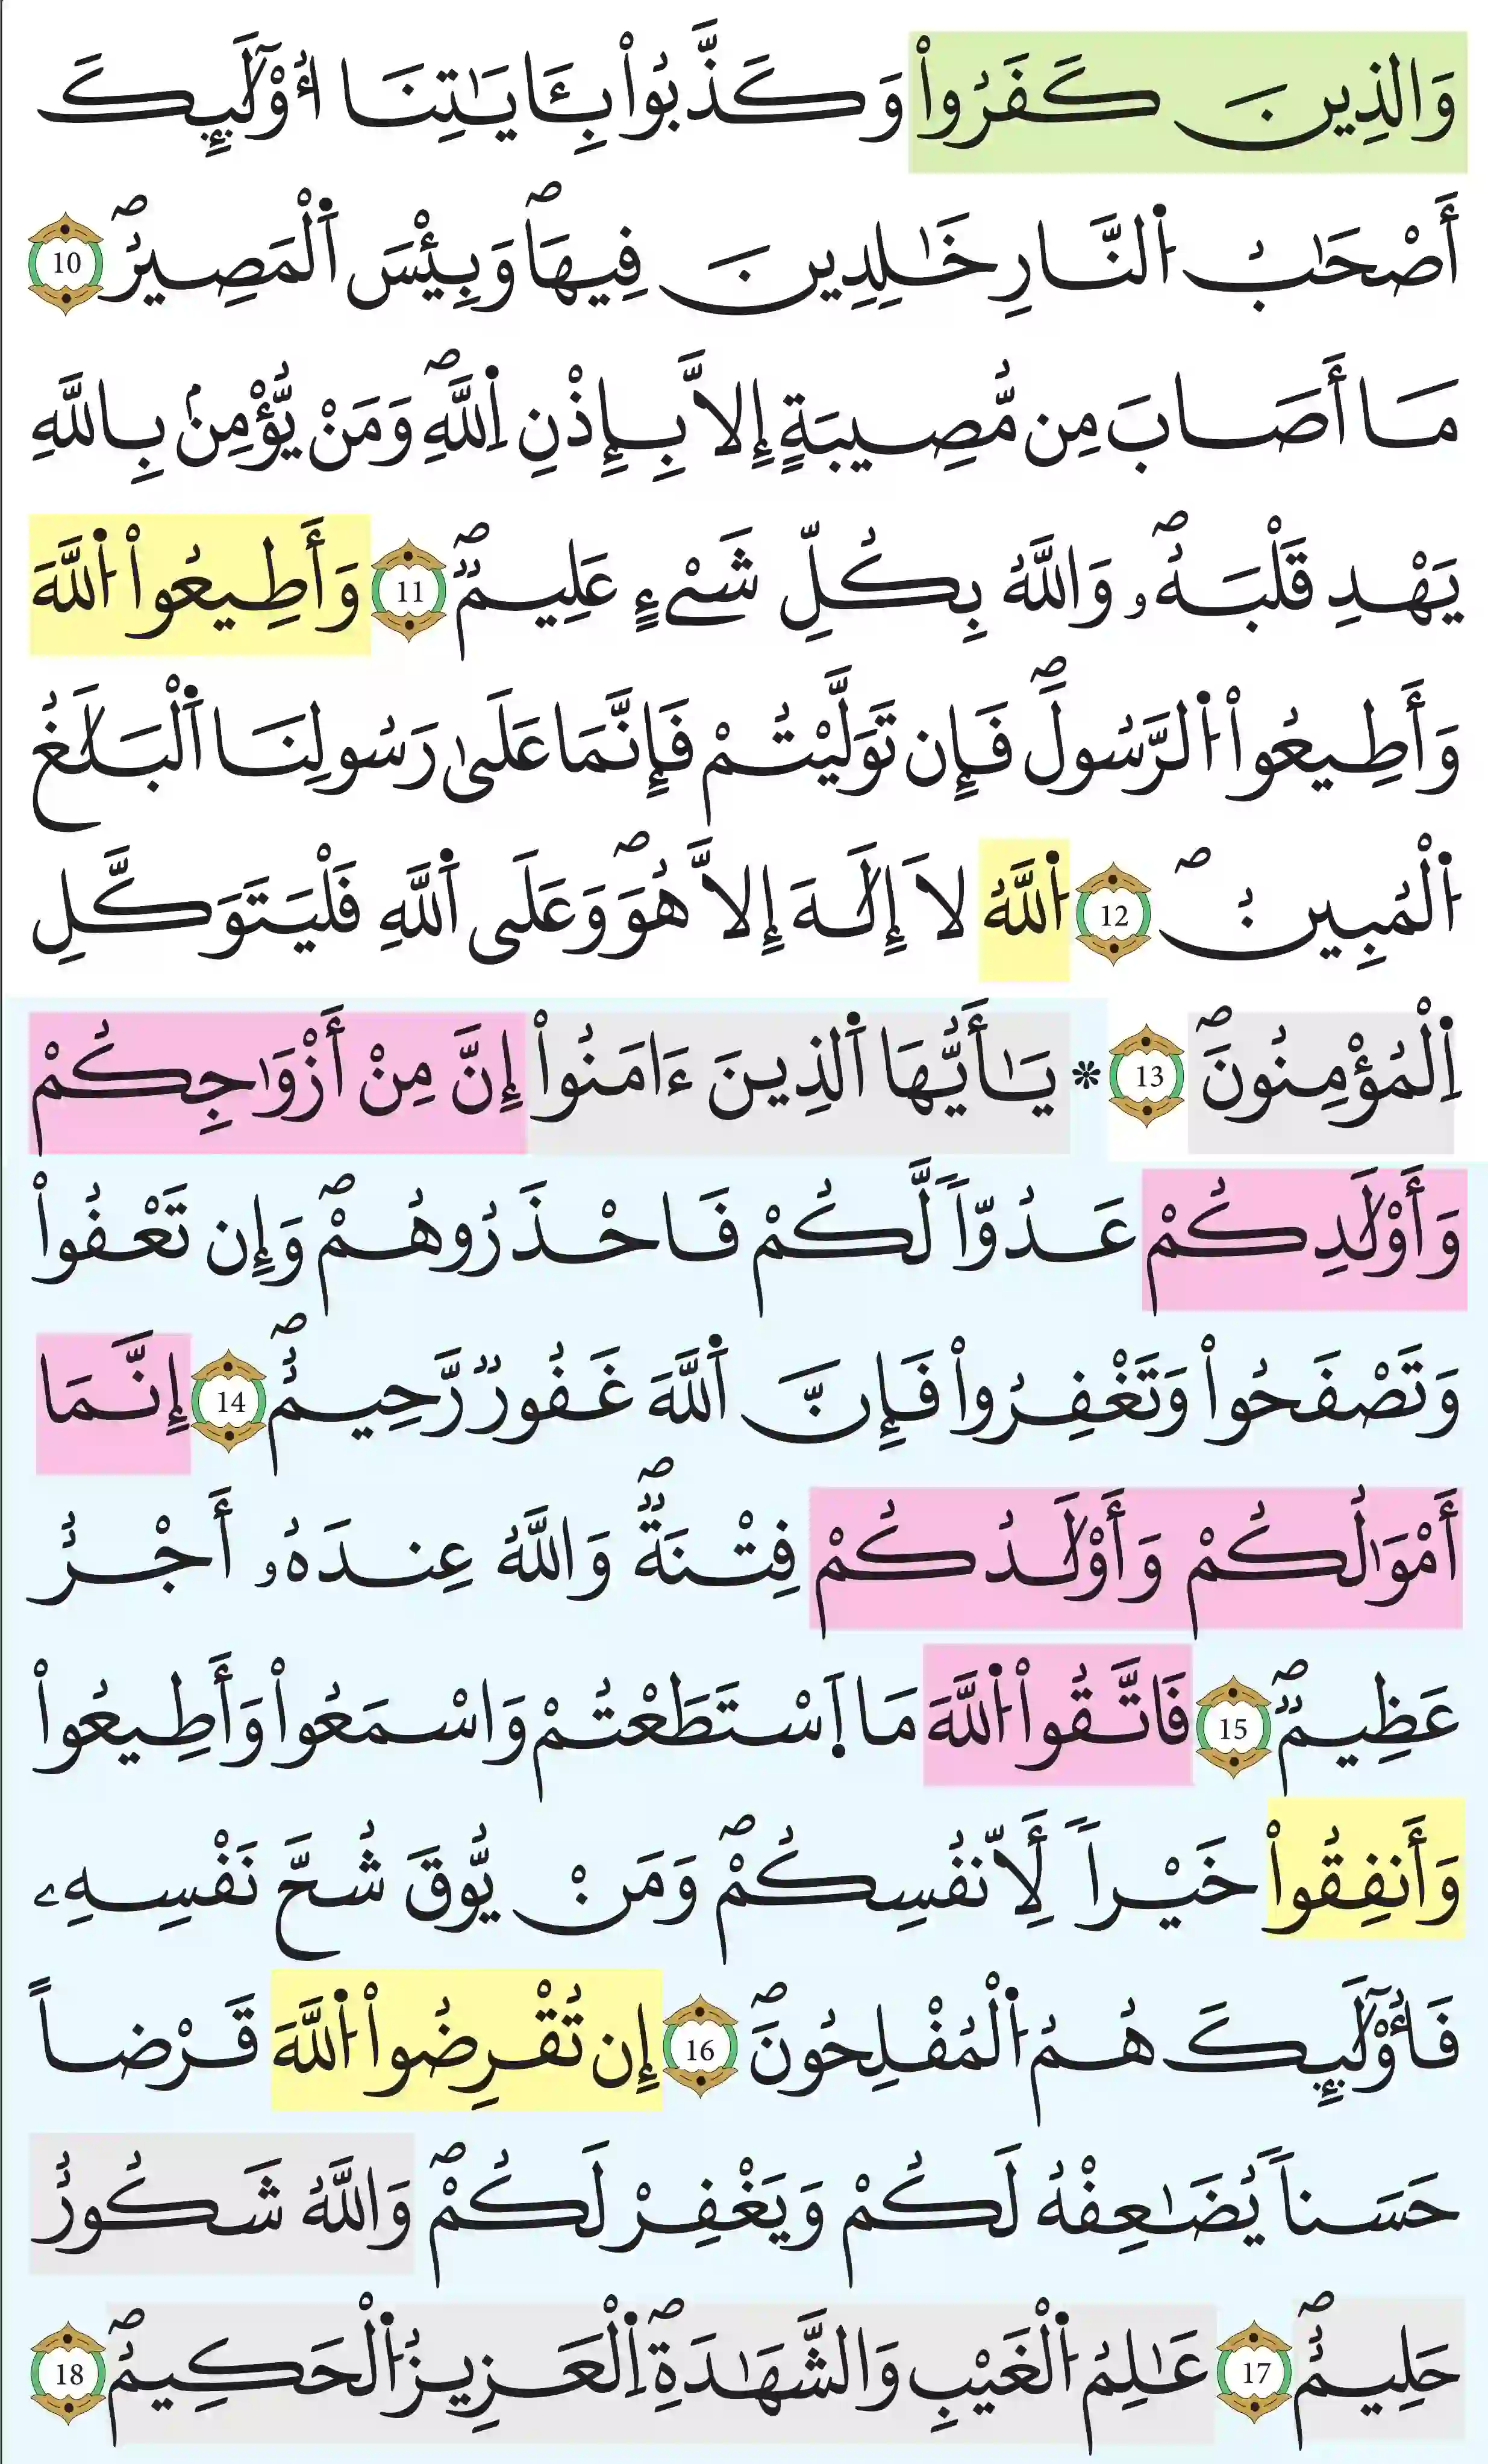 وَالذِينَ كَفَرُواْ وَكَذَّبُواْ بِـَٔايَٰتِنَا أُوْلَٰٓئِكَ
أَصْحَٰبُ اُ۬لنَّارِ خَٰلِدِينَ فِيهَاۖ وَبِئْسَ اَ۬لْمَصِيرُۖ 10
مَا أَصَابَ مِن مُّصِيبَةٍ إِلَّا بِإِذْنِ اِ۬للَّهِۖ وَمَنْ يُّؤْمِنۢ بِاللَّهِ
يَهْدِ قَلْبَهُۥۖ وَاللَّهُ بِكُلِّ شَےْءٍ عَلِيمٞۖ 11 وَأَطِيعُواْ اُ۬للَّهَ
وَأَطِيعُواْ اُ۬لرَّسُولَۖ فَإِن تَوَلَّيْتُمْ فَإِنَّمَا عَلَىٰ رَسُولِنَا اَ۬لْبَلَٰغُ
اُ۬لْمُبِينُۖ 12 اُ۬للَّهُ لَا إِلَٰهَ إِلَّا هُوَۖ وَعَلَى اَ۬للَّهِ فَلْيَتَوَكَّلِ
اِ۬لْمُؤْمِنُونَۖ 13 * يَٰأَيُّهَا اَ۬لذِينَ ءَامَنُواْ إِنَّ مِنْ أَزْوَٰجِكُمْ
وَأَوْلَٰدِكُمْ عَدُوّاٗ لَّكُمْ فَاحْذَرُوهُمْۖ وَإِن تَعْفُواْ
وَتَصْفَحُواْ وَتَغْفِرُواْ فَإِنَّ اَ۬للَّهَ غَفُورٞ رَّحِيمٌۖ 14 إِنَّمَا
أَمْوَٰلُكُمْ وَأَوْلَٰدُكُمْ فِتْنَةٞۖ وَاللَّهُ عِندَهُۥ أَجْرٌ
عَظِيمٞۖ 15 فَاتَّقُواْ اُ۬للَّهَ مَا اَ۪سْتَطَعْتُمْ وَاسْمَعُواْ وَأَطِيعُواْ
وَأَنفِقُواْ خَيْراٗ لِّأَنفُسِكُمْۖ وَمَنْ يُّوقَ شُحَّ نَفْسِهِۦ
فَأُوْلَٰٓئِكَ هُمُ اُ۬لْمُفْلِحُونَۖ 16 إِن تُقْرِضُواْ اُ۬للَّهَ قَرْضاً
حَسَناٗ يُضَٰعِفْهُ لَكُمْ وَيَغْفِرْ لَكُمْۖ وَاللَّهُ شَكُورٌ
حَلِيمٌۖ 17 عَٰلِمُ اُ۬لْغَيْبِ وَالشَّهَٰدَةِۖ اِ۬لْعَزِيزُ اُ۬لْحَكِيمُۖ 18